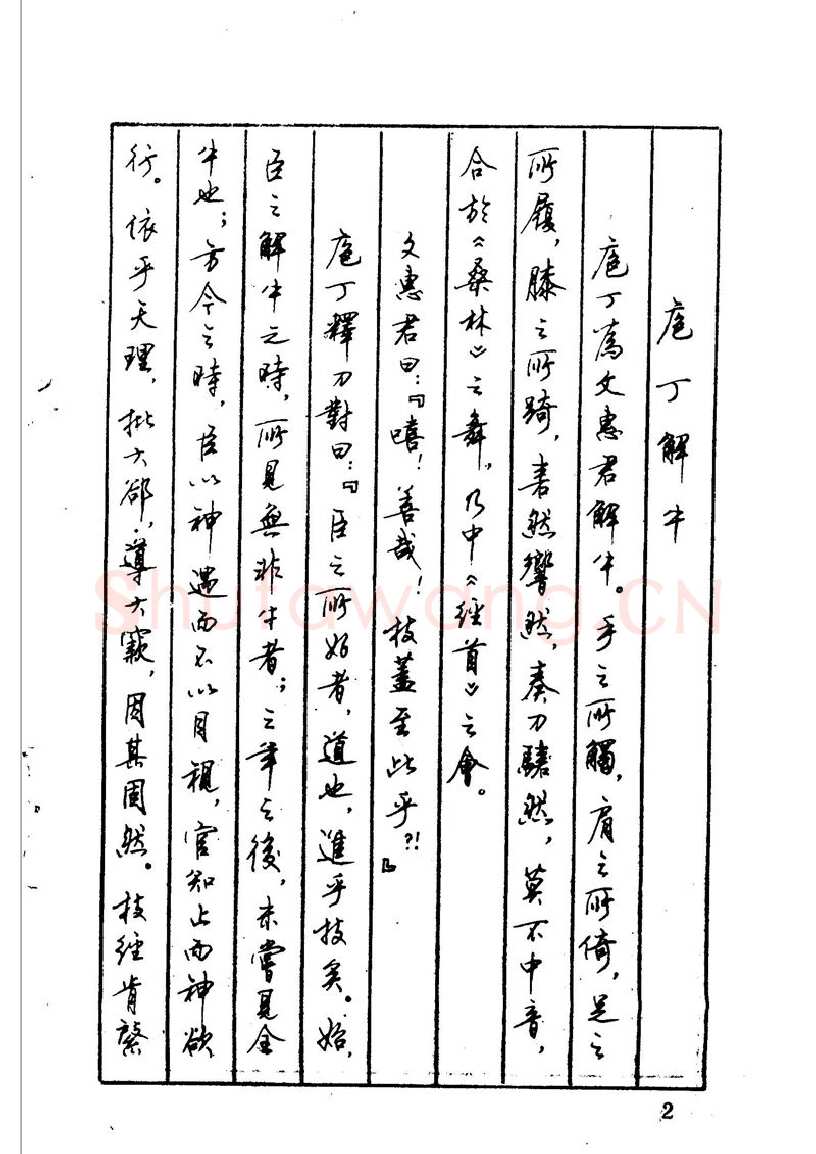 庖丁解牛
庖丁為文惠君解牛。手之所觸,肩之所倚,足之
所履,膝之所踦,砉然響然,奏刀騞然,莫不中音,
合於《桑林》之舞,乃中《經首》之會。
文惠君曰:『嘻!善哉!技蓋至此乎?!』
庖丁釋刀對曰:『臣之所好者,道也,進乎技矣。始,
臣之解牛之時,所見無非牛者;三年之後,未嘗見全
牛也;方今之時,臣以神遇而不以目視,官知止而神欲
行。依乎天理,批大郤,導大窾,因其固然。技經肯綮
2
Shufawang.CN